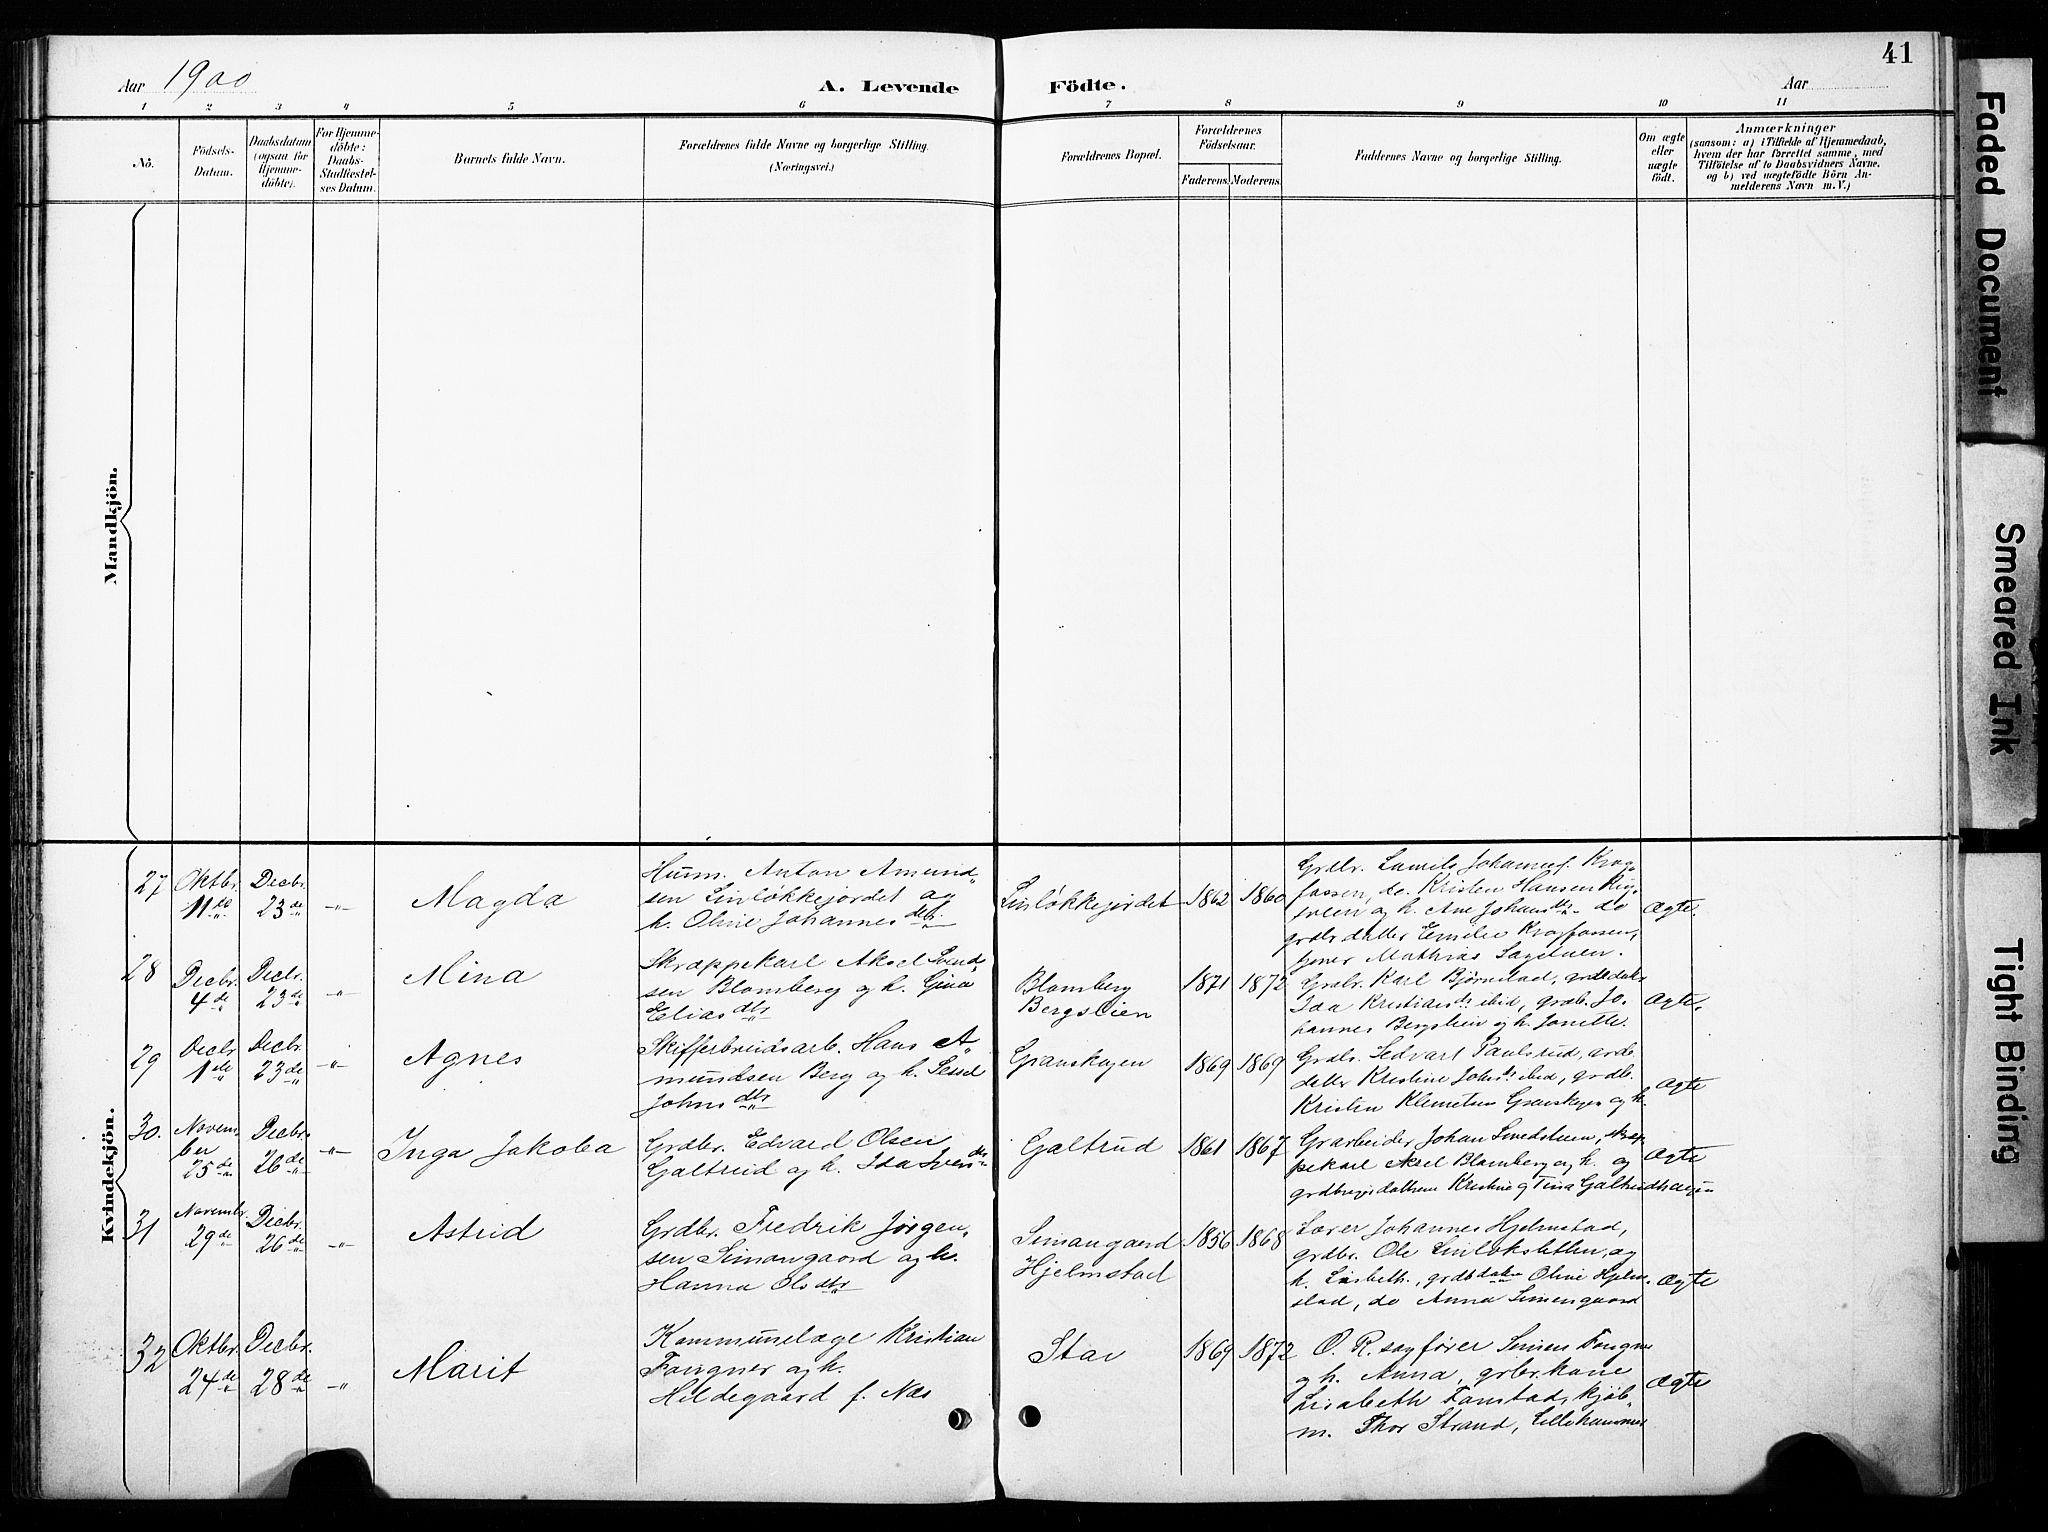 41
Aar 1900
A. Levende Födte.
Aar
1 2 3 4 5 6 7 8 9 10 11
Nô.
Födsels-
Datum.
Daabsdatum
(ogsaa for
Hjemme-
döbte).
For Hjemme-
döbte:
Daabs-
Stadfæstel-
ses Datum.
Barnets fulde Navn.
Forældrenes fulde Navne og borgerlige Stilling.
(Næringsvei.)
Forældrenes Bopæl.
Forældrenes
Födselsaar.
Faderens. Moderens.
Faddernes Navne og borgerlige Stilling.
Om ægte
eller
uægte
födt.
Anmærkninger
(saasom: a) i Tilfælde af Hjemmedaab,
hvem der har forrettet samme, med
Tilföielse af to Daabsvidners Navne.
og b) ved uægtefödte Börn An-
melderens Navn m.V.)
Mandkjön.
Kvindekjön.
27
Oktbr.
11de
Decbr.
23de
-"-
Magda
Husm. Anton Amund-
sen Linløkkejordet og
h. Oline Johannesdtr.
Linløkkejordet
1862 1860
Kristen Hansen
Ægte
28
Decbr.
4de
Decbr.
23de
-"-
Mina
Skræppekarl Aksel Svend-
sen Blomberg og h. Gina
Eliasdtr
Blomberg
Bergslien
1871 1872
Grdbr. Karl Bjørnstad,
Ida Kristiansdtr. ibid, grdb. Jo-
hannes Bergslien og h. Jonette.
Ægte.
29
Decbr.
1ste
Decbr.
23de
-"-
Agnes
Skifferbrudsarb. Hans A-
mundsen Berg og h. Sessel
Johnsdtr
Granskogen
1869 1869
Grdbr. Sedvart Paulsrud,
Kristine Johnsdtr. ibid, grdb.
Kristen Klemetsen Granskogen og h.
Ægte
30.
Novem-
ber
25de
Decbr.
26de
-"-
Inga Jakoba
Grdbr. Edvard Olsen
Galtrud og h. Ida Iversdtr
Galtrud
1861 1867
Grarbeider Johan Smedstuen, skræp-
pekarl Aksel Blomberg og h. og
Kristine og Tina Galtrudhaugen
Ægte
31
Novembr.
29de
Decbr.
26de
-"-
Astrid
Grdbr. Fredrik Jørgen-
sen Simengaard og h.
Hanna Olsdtr
Simengaard
Hjelmstad
1856 1868
Lærer Johannes Hjelmstad,
grdbr. Ole Linløksletten, og
h. Lisbeth., Oline Hjelm-
stad, do Anna Simengaard
Ægte
32
Oktbr.
24de
Decbr.
28de
-"-
Marit
Kommunelæge Kristian
Fougner og h.
Hildegaard f. Næs
Stav
1869 1872
O. R. sagfører Simen Fougner
og h. Anna, grbr.kone
Lisabeth Fonstad, kjøb-
m. Thor Strand, Lillehammer
Ægte
Faded Document
Smeared Ink
Tight Binding